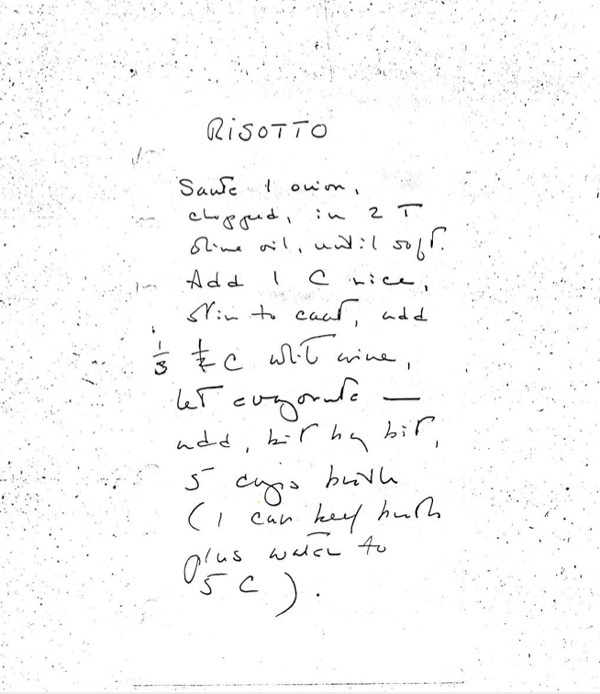 RISOTTO
Saute 1 onion,
chopped, in 2 T
olive oil, until soft.
Add 1 C rice,
stir to coat, add
1/3 1/2 C white wine,
let evaporate —
add, bit by bit,
5 cups broth
(1 can beef broth
plus water to
5 C).